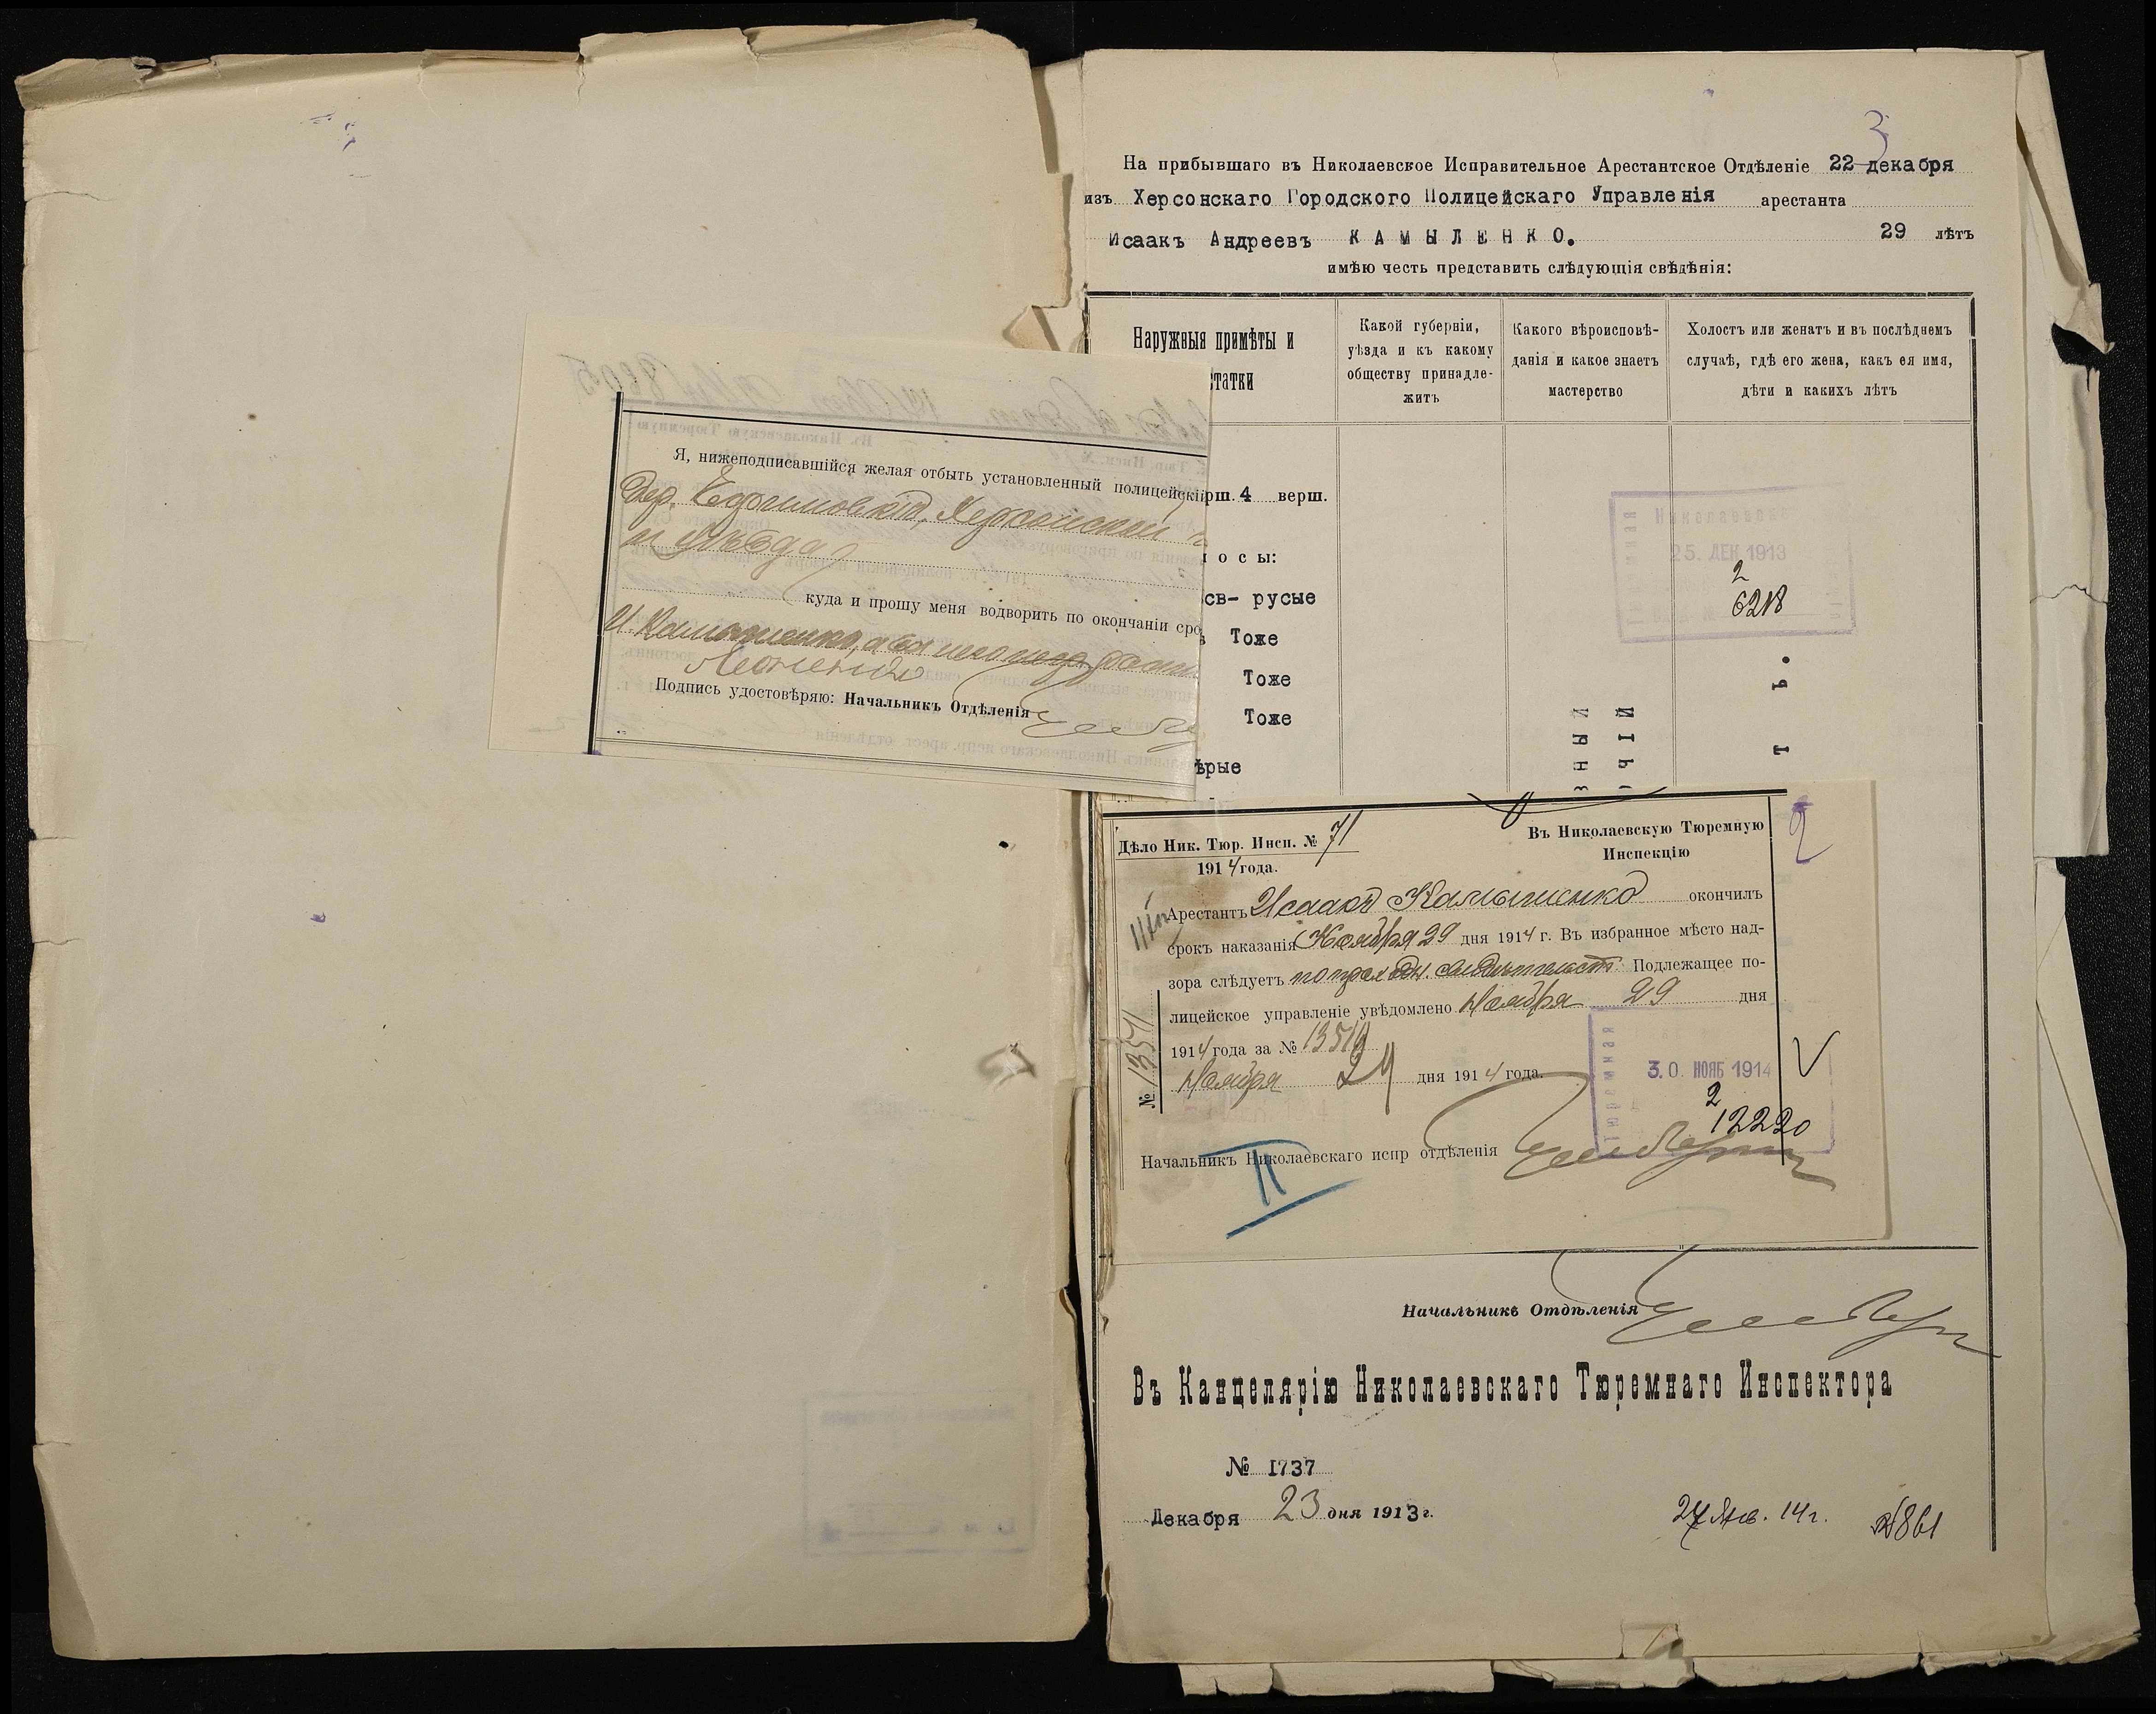 3
На прибывшаго въ Николаевское Исправительное Арестантское Отдѣленіе 22 декабря
изъ Херсонскаго Городского Полицейскаго Управленія арестанта
Исаакъ Андреевъ КАМЫЛЕНКО. 29 лѣтъ
имѣю честь представить слѣдующія свѣдѣнія:
Наружныя примѣты и
татки
Какой губерніи,
уѣзда и къ какому
обществу принадле-
житъ
Какого вѣроисповѣ-
данія и какое знаетъ
мастерство
Холостъ или женатъ и въ послѣднемъ
случаѣ, гдѣ его жена, какъ ея имя,
дѣти и каких ъ лѣтъ
рш. 4 верш.
осы:
св- русые
Тоже
Тоже
Тоже
ѣрые
25. ДЕК 1913
2
6218
Я, нижеподписавшійся желая отбыть установленный полицейскі
дер. Ефимовка, Херсонской г
и уѣзда
куда и прошу меня водворить по окончаніи сро
И. Камыленко, а за
Подпись удостовѣряю: Начальникъ Отдѣленія
Дѣло Ник. Тюр. Инсп. № 71
1914 года.
Въ Николаевскую Тюремную
Инспекцію
2
Арестантъ Исаакъ Камыленко окончилъ
срокъ наказанія Ноября 29 дня 1914 г. Въ избранное мѣсто над-
зора слѣдуетъ по проходн. свидѣтельст. Подлежащее по-
лицейское управленіе увѣдомлено Ноября 29 дня
1914 года за № 13510
Ноября 29 дня 1914 года.
№ 13511
Тюремная
30. НОЯБ 1914
2
12220
Начальникъ Николаевскаго испр отдѣленія
II
Начальникъ Отдѣленія
Въ Канцелярію Николаевскаго Тюремнаго Инспектора
№ 1737
Декабря 23 дня 1913 г.
27 Янв. 14 г. №861